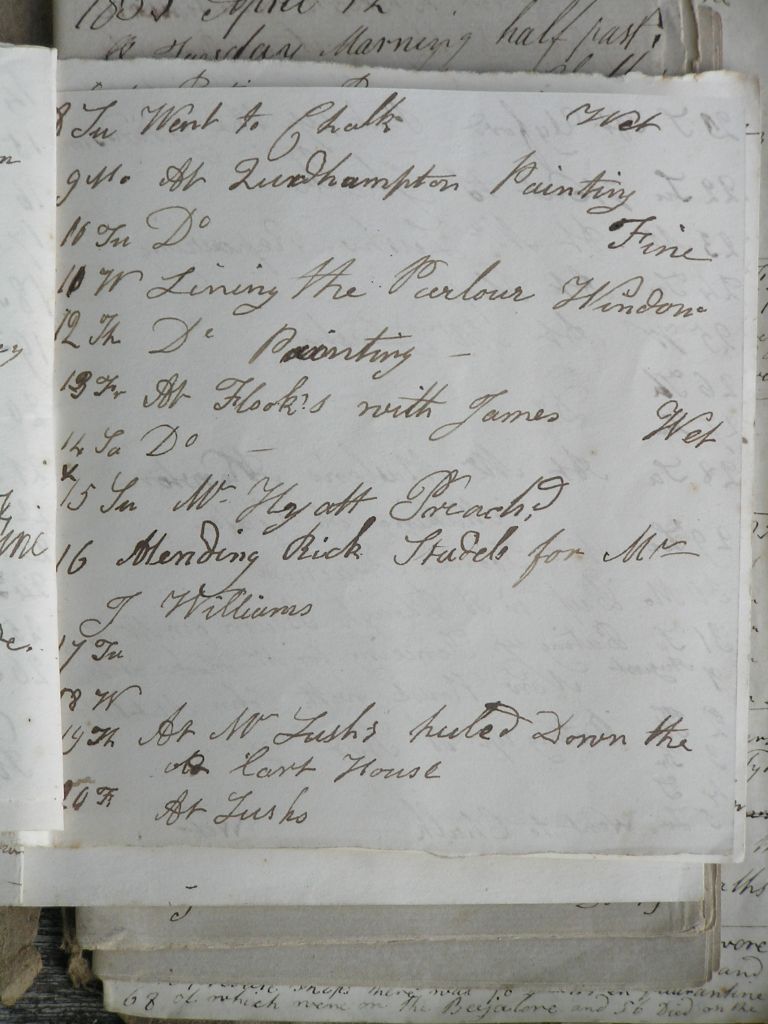 1831 April 12
Tuesday Morning half past
8 Su Went to Chalk Wet
9 Mo At Quidhampton Painting
10 Tu Do Fine
11 W Lining the Parlour Window
12 Th Do Painting –
13 Fr At Flook's with James Wet
14 Sa Do –
x 15 Su Mr Hyatt Preach'd
16 Mending Rick Stadels for Mr
J Williams
17 Tu
18 W
19 Th At Mr Lush's huled Down the
old Cart House
20 F At Lushs
there was
68 of which were on the and 56 Died on the